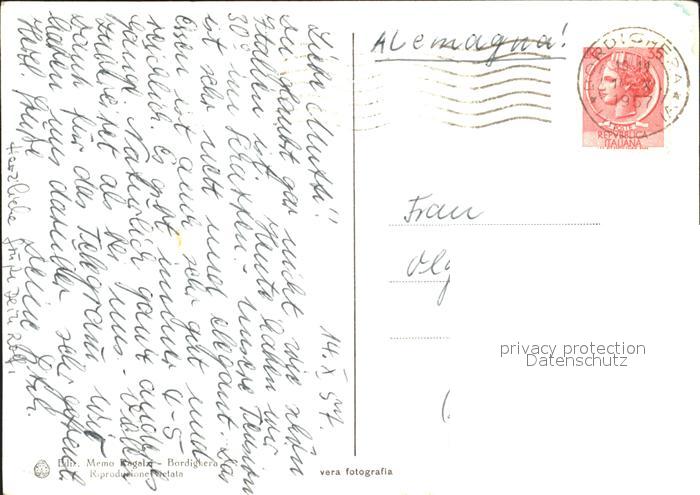 14. X. 57.
Liebe Mutti!
Du glaubst gar nicht wie schön
Italien ist. Heute haben wir
30° im Schatten. Unsere Pension
ist sehr nett und elegant. Das
Essen ist auch sehr gut und
reichlich. Es gibt immer 4-5
Gänge. Natürlich ganz anders
zubereitet als bei uns. Vielen
Dank für das Telegramm wir
haben uns darüber sehr gefreut.
Herzl. Grüße Deine
Herzliche Grüße Dein
Alemagna!
BORDIGHERA
1957
POSTE
REPVBBLICA
ITALIANA
Frau
Olg
privacy protection
Datenschutz
Ediz. Memo Ragazzi - Bordighera
Riproduzione vietata
vera fotografia